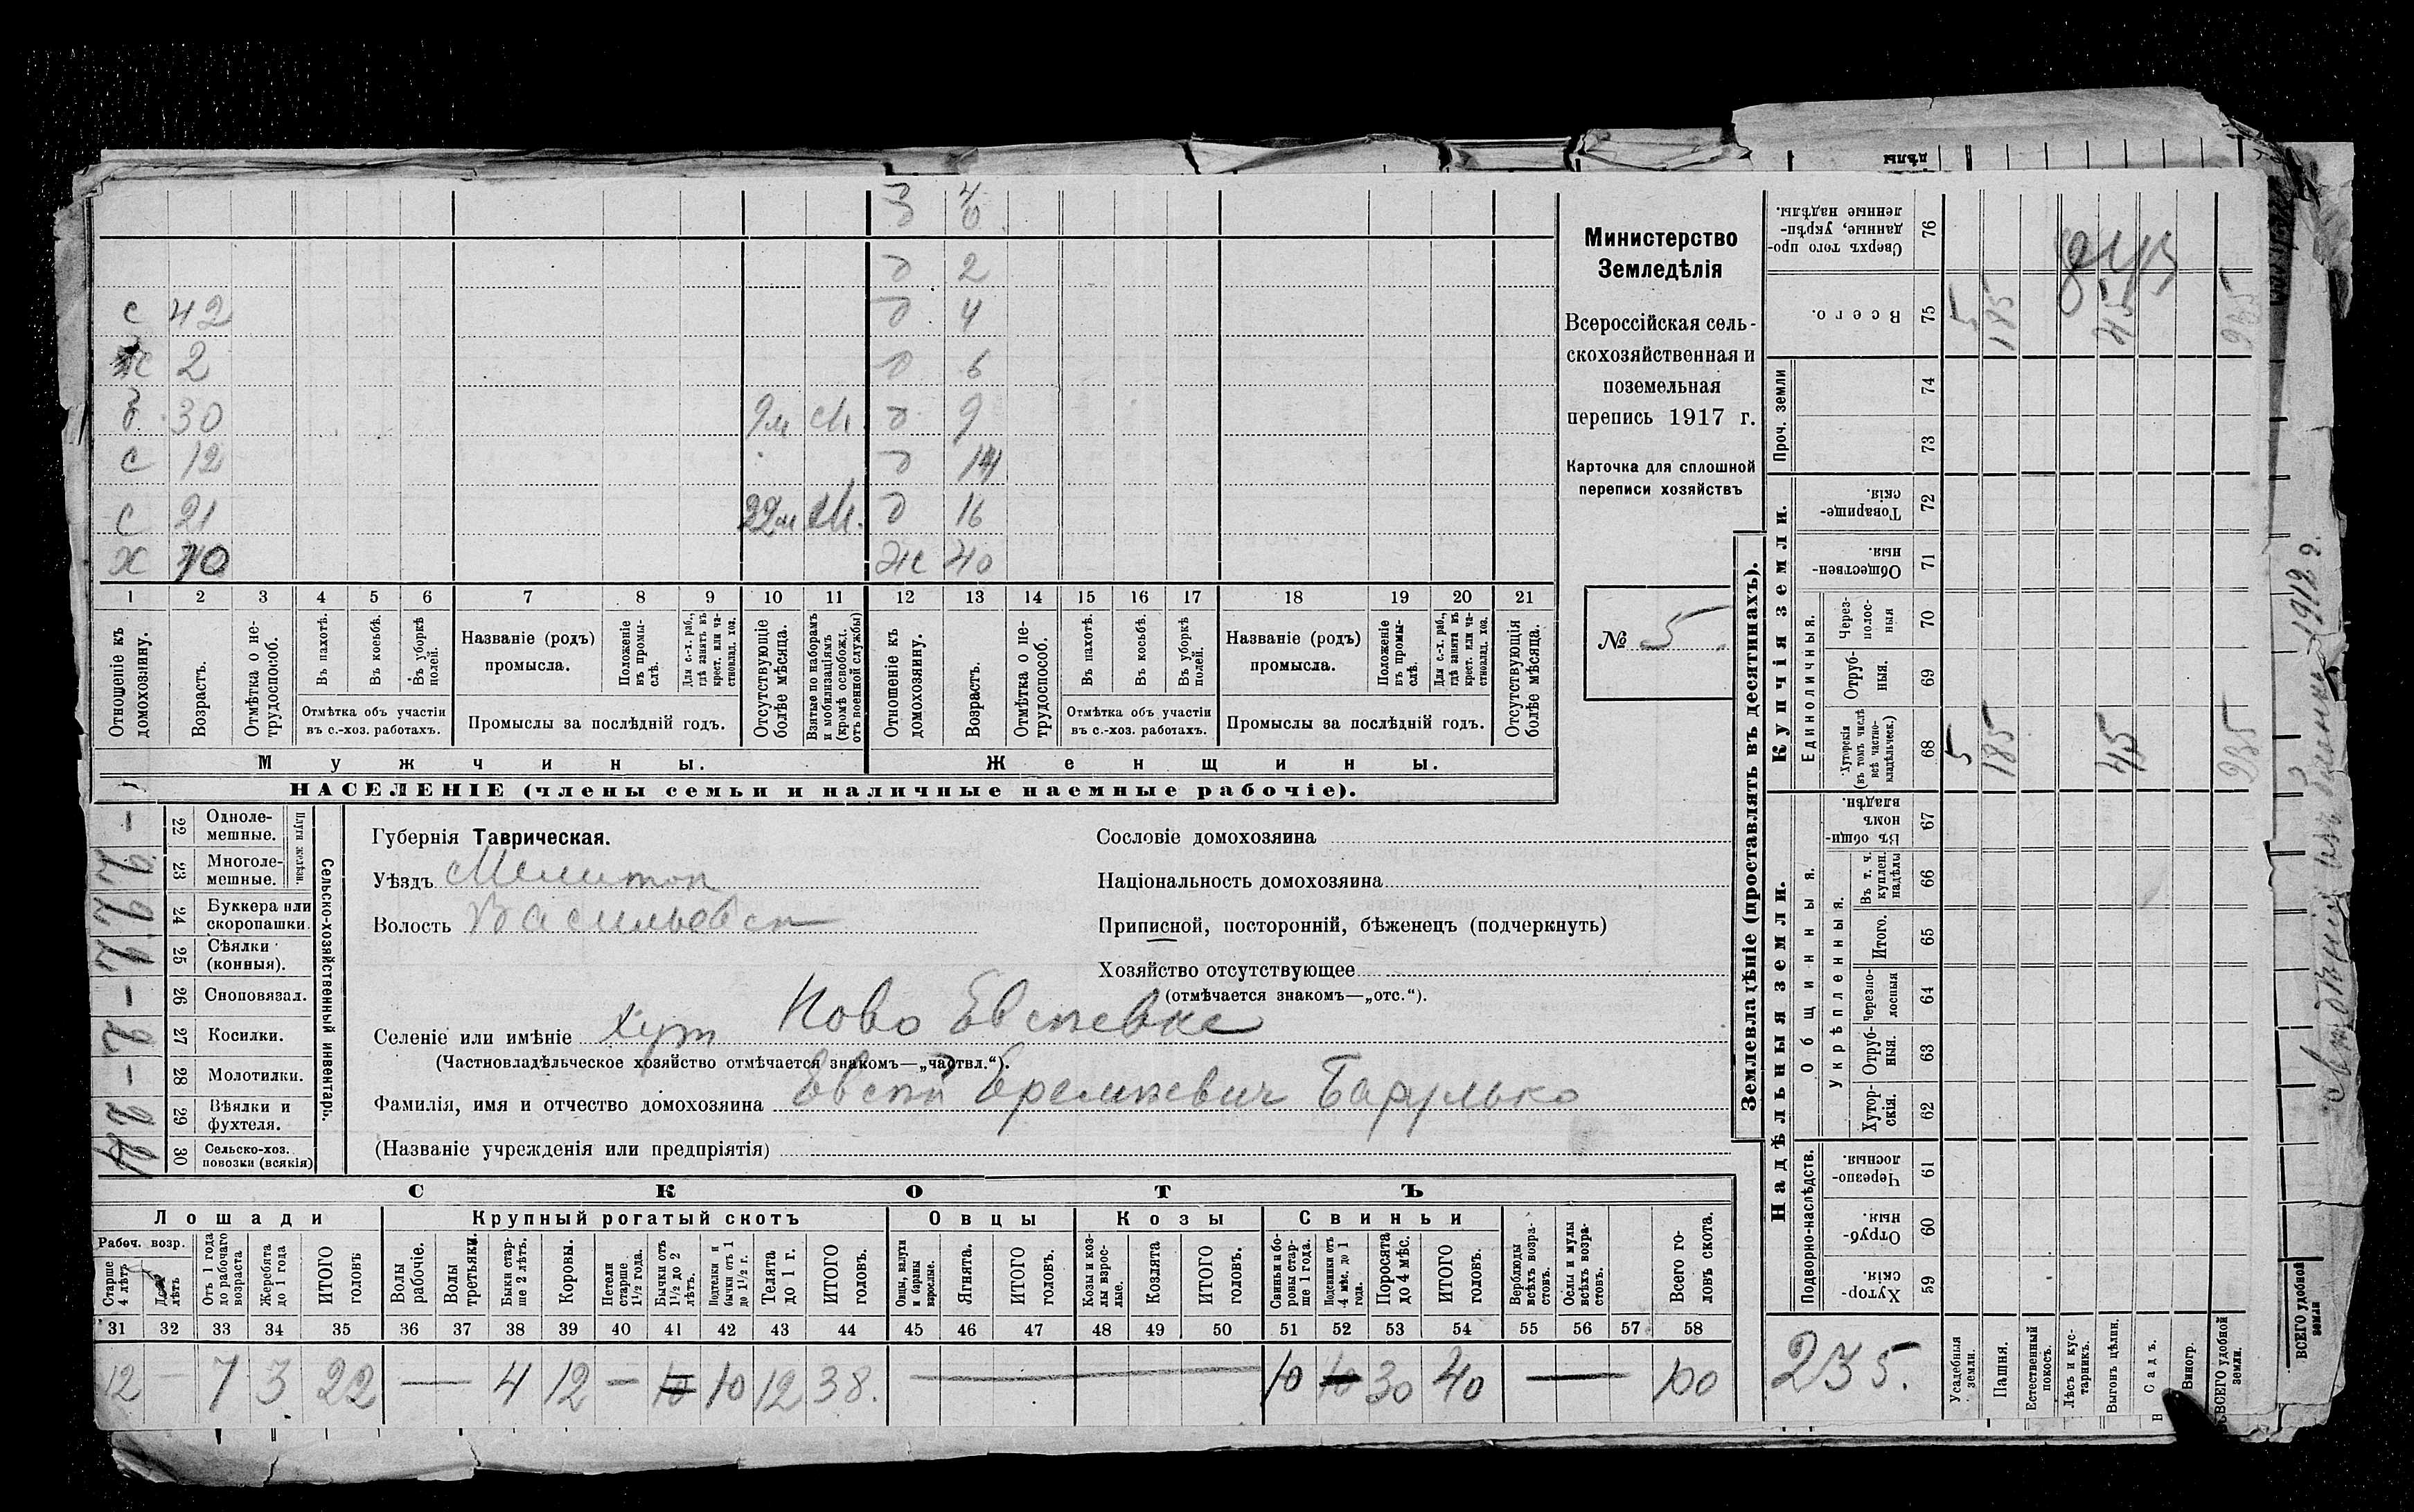 З 4/0
д 2
с 42 д 4
ж 2 д 6
б. 30 9м М. д 9
с 12 д 14
с 21 22м М. д 16
х 40 Ж 40
1 2 3 4 5 6 7 8 9 10 11 12 13 14 15 16 17 18 19 20 21
Отношеніе къ домохозяину.
Возрастъ.
Отмѣтка о нетрудоспособ.
Въ пахотѣ.
Въ косьбѣ.
Въ уборкѣ полей.
Отмѣтка объ участіи въ с.-хоз. работахъ.
Названіе (родъ) промысла.
Положеніе въ промыслѣ.
Для с.-х. раб., гдѣ занятъ въ крест. или частновлад. хоз.
Промыслы за послѣдній годъ.
Отсутствующіе болѣе мѣсяца.
Взятые по наборамъ и мобилизаціямъ (кромѣ освобожд. отъ военной службы)
Отношеніе къ домохозяину.
Возрастъ.
Отмѣтка о нетрудоспособ.
Въ пахотѣ.
Въ косьбѣ.
Въ уборкѣ полей.
Отмѣтка объ участіи въ с.-хоз. работахъ.
Названіе (родъ) промысла.
Положеніе въ промыслѣ.
Для с.-х. раб., гдѣ занята въ крест. или частновлад. хоз.
Промыслы за послѣдній годъ.
Отсутствующія болѣе мѣсяца.
Мужчины.
Женщины.
НАСЕЛЕНІЕ (члены семьи и наличные наемные рабочіе).
Министерство
Земледѣлія
Всероссійская сель-
скохозяйственная и
поземельная
перепись 1917 г.
Карточка для сплошной
переписи хозяйствъ
№ 5
Сельско-хозяйственный инвентарь.
Плуги желѣзн.
- 22 Однолемешные.
2 23 Многолемешные.
2 24 Буккера или скоропашки.
2 25 Сѣялки (конныя).
- 26 Сноповязал.
2 27 Косилки.
- 28 Молотилки.
2 29 Вѣялки и фухтеля.
30 Сельско-хоз. повозки (всякія)
Губернія Таврическая.
Уѣздъ Мелитоп
Волость Васильевск
Сословіе домохозяина
Національность домохозяина
Приписной, посторонній, бѣженецъ (подчеркнуть)
Хозяйство отсутствующее
(отмѣчается знакомъ—„отс.“).
Селеніе или имѣніе хут Ново Евсеевке
(Частновладѣльческое хозяйство отмѣчается знакомъ—„частвл.“).
Фамилія, имя и отчество домохозяина Евсей Еремеевич Барулько
(Названіе учрежденія или предпріятія)
СКОТЪ
Лошади
Крупный рогатый скотъ
Овцы
Козы
Свиньи
Рабоч. возр.
Старше 4 лѣтъ
До 4 лѣтъ
Отъ 1 года до рабочаго возраста
Жеребята до 1 года
ИТОГО головъ
Волы рабочіе.
Волы третьяки.
Быки старше 2 лѣтъ.
Коровы.
Нетели старше 1½ года.
Бычки отъ 1½ до 2 лѣтъ.
Подтелки и бычки отъ 1 до 1½ г.
Телята до 1 г.
ИТОГО головъ.
Овцы, валухи и бараны взрослые.
Ягнята.
ИТОГО головъ.
Козы и козлы взрослые.
Козлята
ИТОГО головъ.
Свиньи и боровы старше 1 года.
Подсвинки отъ 4 мѣс. до 1 года.
Поросята до 4 мѣс.
ИТОГО головъ.
Верблюды всѣхъ возрастовъ.
Ослы и мулы всѣхъ возрастовъ.
Всего головъ скота.
31 32 33 34 35 36 37 38 39 40 41 42 43 44 45 46 47 48 49 50 51 52 53 54 55 56 57 58
12 — 7 3 22 — 4 12 — 10 10 12 38. — 10 10 30 40 — 100
Землевладѣніе (проставлять въ десятинахъ).
Надѣльныя земли.
Купчія земли.
Проч. земли
Подворно-наслѣдств.
Общинныя.
Укрѣпленныя.
Единоличныя.
Хуторскія. 59
Отрубныя. 60
Черезполосныя. 61
Хуторскія. 62
Отрубныя. 63
Черезполосныя 64
Итого. 65
Въ т. ч. куплен. надѣлы 66
Въ общинномъ владѣн. 67
Хуторскія (въ томъ числѣ всѣ частновладѣльческ.) 68
Отрубныя. 69
Черезполосныя 70
Общественныя. 71
Товарищескія. 72
73
74
Всего. 75
Сверхъ того проданные, укрѣпленные надѣлы. 76
Усадебныя земли. 5 5
Пашня. 185 185
Естественный покосъ.
Лѣсъ и кустарникъ.
Выгонъ цѣлин. 45 45
Садъ.
Виногр.
ВСЕГО удобной земли. 235 235
235.
ВСЕГО удобной земли
дѣлы